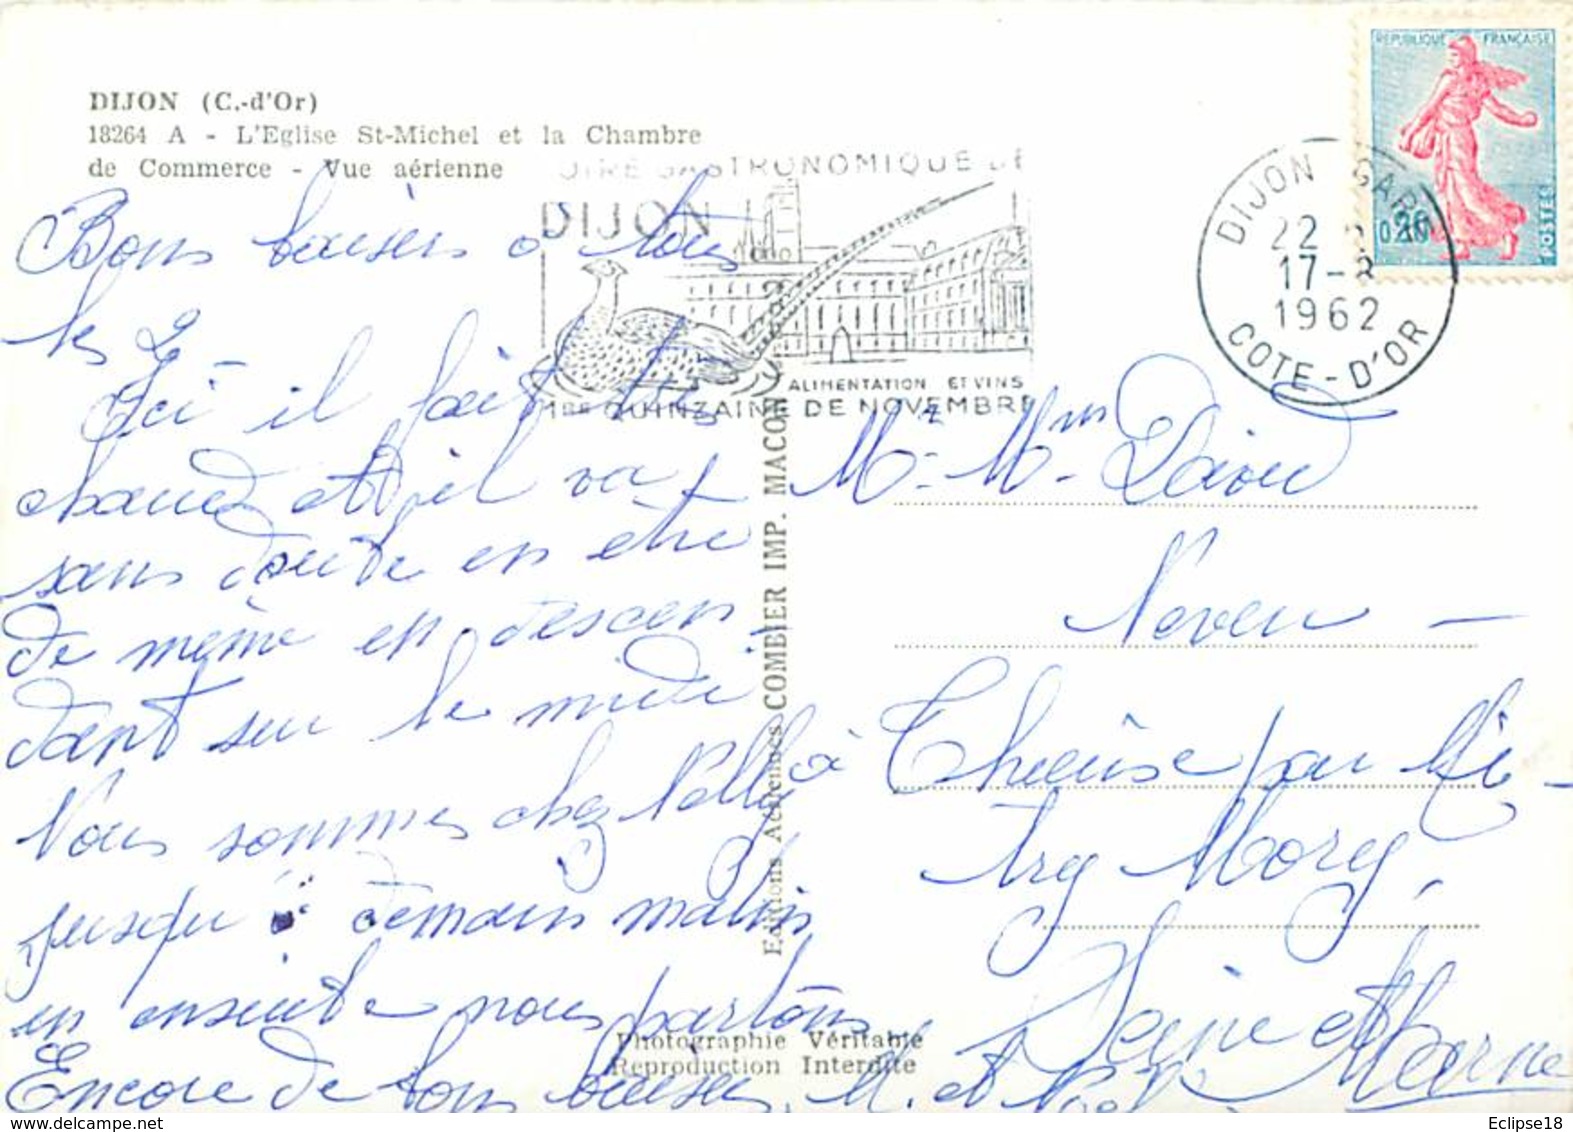 DIJON (C.-d'Or)
18264 A - L'Eglise St-Michel et la Chambre
de Commerce - Vue aérienne
OIRE GASTRONOMIQUE DE
DIJON
ALIMENTATION ET VINS
1ère QUINZAINE DE NOVEMBRE
REPUBLIQUE FRANÇAISE
0,20
POSTES
DIJON GARE
22
17-8
1962
COTE-D'OR
Bons baisers à tous
les 2
Ici il fait très
chaud et il va
sans doute en être
de même en descen-
dant sur le midi
Nous sommes chez Nelly à
jusqu'à demain matin
en ensuite nous partons
Encore de bons baisers. N. et
Mr. Mme
Neveu -
par Mi-
try Mory
Seine et Marne
Editions Aériennes COMBIER IMP. MACON
Photographie Véritable
Reproduction Interdite
Eclipse18